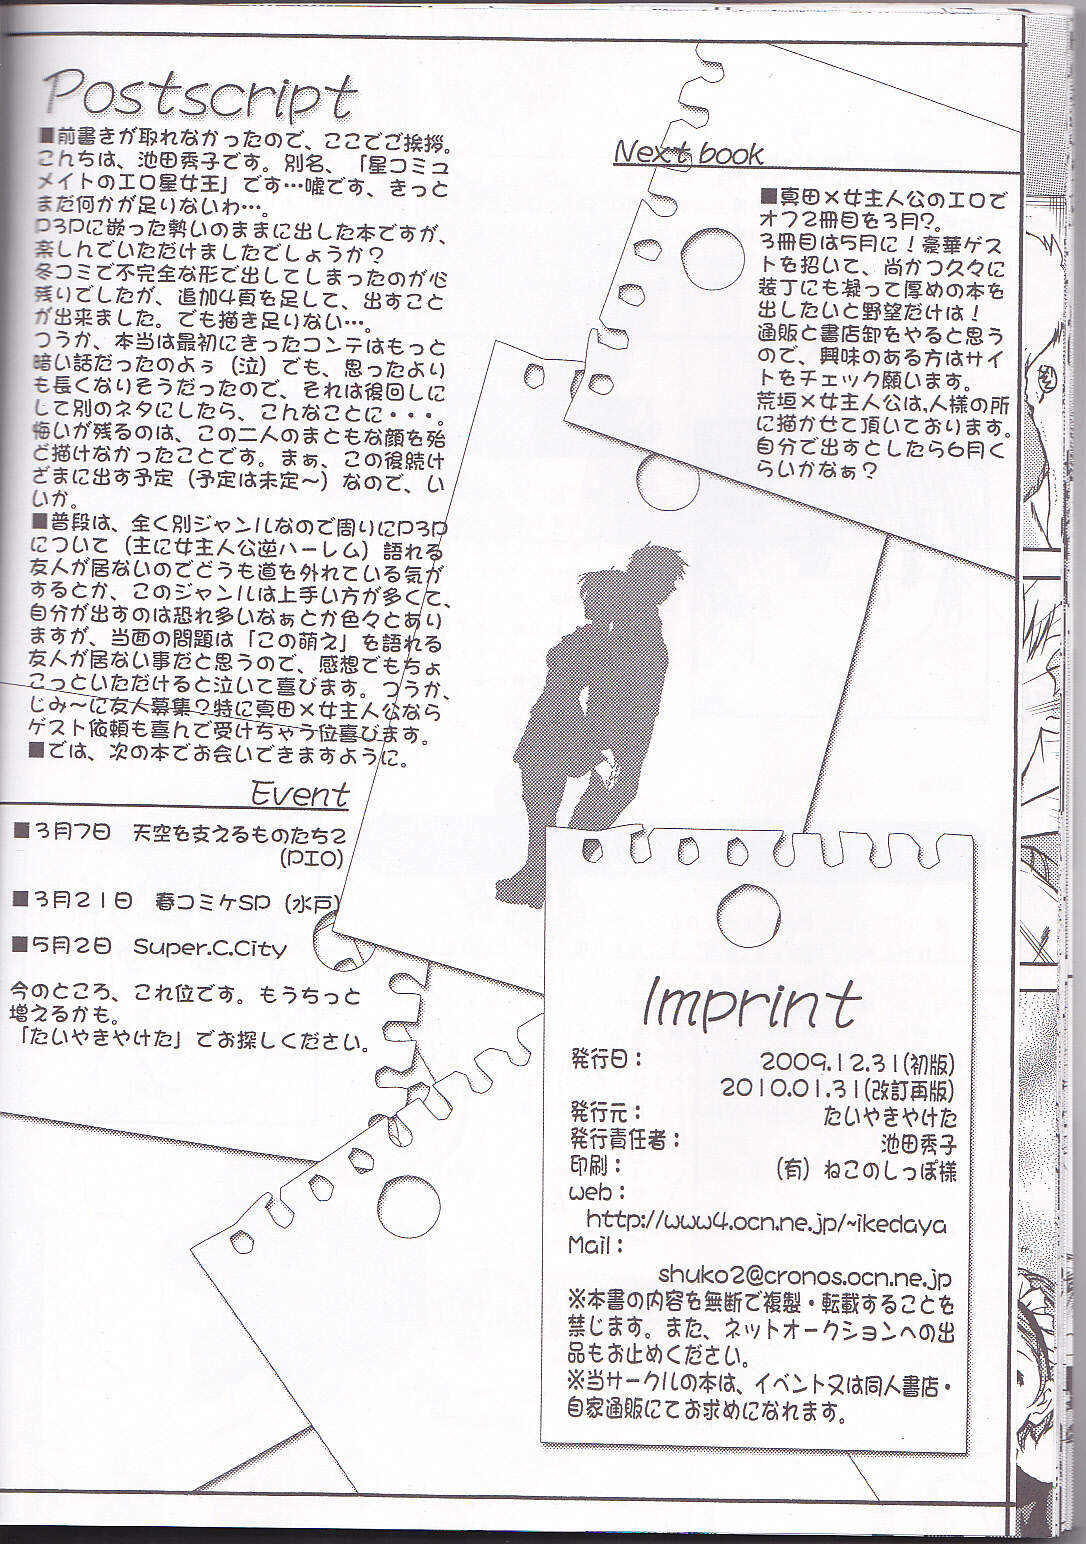 Postscript
■前書きが取れなかったので、ここでご挨拶。
こんちは、池田秀子です。別名、「星コミュ
メイトのエロ星女王」です…嘘です、きっと
まだ何かが足りないわ…。
P3Pに嵌った勢いのままに出した本ですが、
楽しんでいただけましたでしょうか？
冬コミで不完全な形で出してしまったのが心
残りでしたが、追加4頁を足して、出すこと
が出来ました。でも描き足りない…。
つうか、本当は最初にきったコンテはもっと
暗い話だったのよぅ（泣）でも、思ったより
も長くなりそうだったので、それは後回しに
して別のネタにしたら、こんなことに・・・。
悔いが残るのは、この二人のまともな顔を殆
ど描けなかったことです。まぁ、この後続け
ざまに出す予定（予定は未定～）なので、い
いか。
■普段は、全く別ジャンルなので周りにP3P
について（主に女主人公逆ハーレム）語れる
友人が居ないのでどうも道を外れている気が
するとか、このジャンルは上手い方が多くて、
自分が出すのは恐れ多いなぁとか色々とあり
ますが、当面の問題は「この萌え」を語れる
友人が居ない事だと思うので、感想でもちょ
こっといただけると泣いて喜びます。つうか、
じみ～に友人募集？特に真田×女主人公なら
ゲスト依頼も喜んで受けちゃう位喜びます。
■では、次の本でお会いできますように。
Event
■3月7日　天空を支えるものたち2
（PIO）
■3月21日　春コミケSP（水戸）
■5月2日　Super.C.City
今のところ、これ位です。もうちっと
増えるかも。
「たいやきやけた」でお探しください。
Next book
■真田×女主人公のエロで
オフ2冊目を3月？。
3冊目は5月に！豪華ゲス
トを招いて、尚かつ久々に
装丁にも凝って厚めの本を
出したいと野望だけは！
通販と書店卸をやると思う
ので、興味のある方はサイ
トをチェック願います。
荒垣×女主人公は、人様の所
に描かせて頂いております。
自分で出すとしたら6月く
らいかなぁ？
Imprint
発行日：　2009.12.31(初版)
2010.01.31(改訂再版)
発行元：　たいやきやけた
発行責任者：　池田秀子
印刷：　（有）ねこのしっぽ様
web：
http://www4.ocn.ne.jp/~ikedaya
Mail：
shuko2@cronos.ocn.ne.jp
※本書の内容を無断で複製・転載することを
禁じます。また、ネットオークションへの出
品もお止めください。
※当サークルの本は、イベント又は同人書店・
自家通販にてお求めになれます。